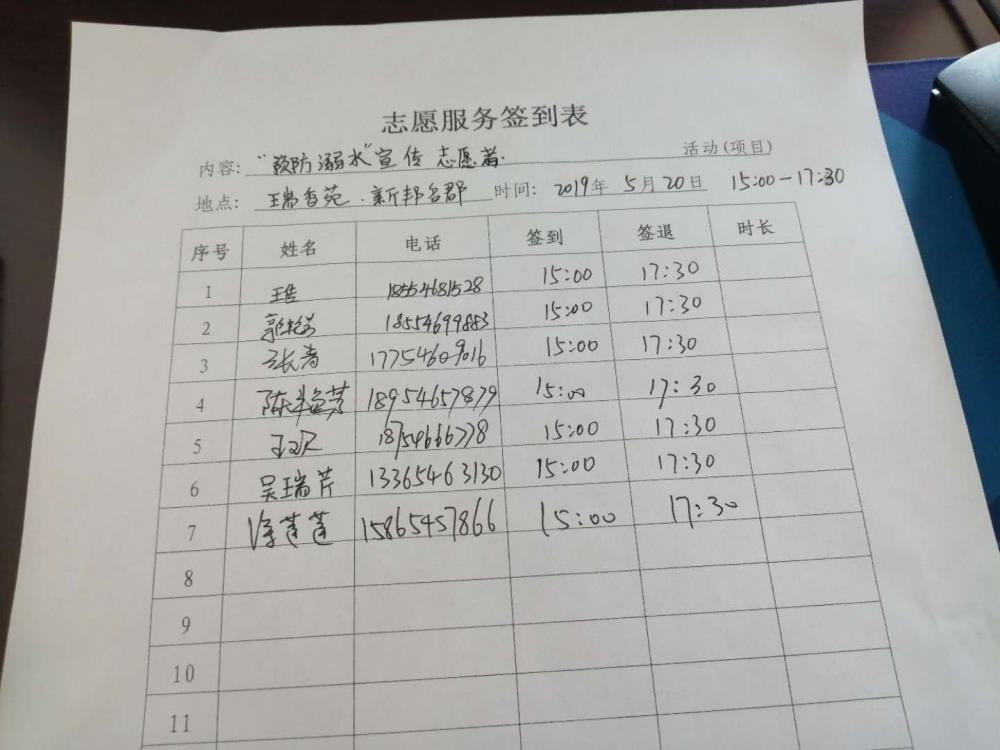 志愿服务签到表
内容: "预防溺水"宣传志愿者. 活动(项目)
地点: 瑞香苑.新邦名郡 时间: 2019年 5月20日 15:00-17:30
序号 姓名 电话 签到 签退 时长
1 王浩 18554681528 15:00 17:30
2 18554699883 15:00 17:30
3 张涛 17754609016 15:00 17:30
4 18954657879 15:00 17:30
5 15:00 17:30
6 吴瑞芹 13365463130 15:00 17:30
7 15865457866 15:00 17:30
8
9
10
11